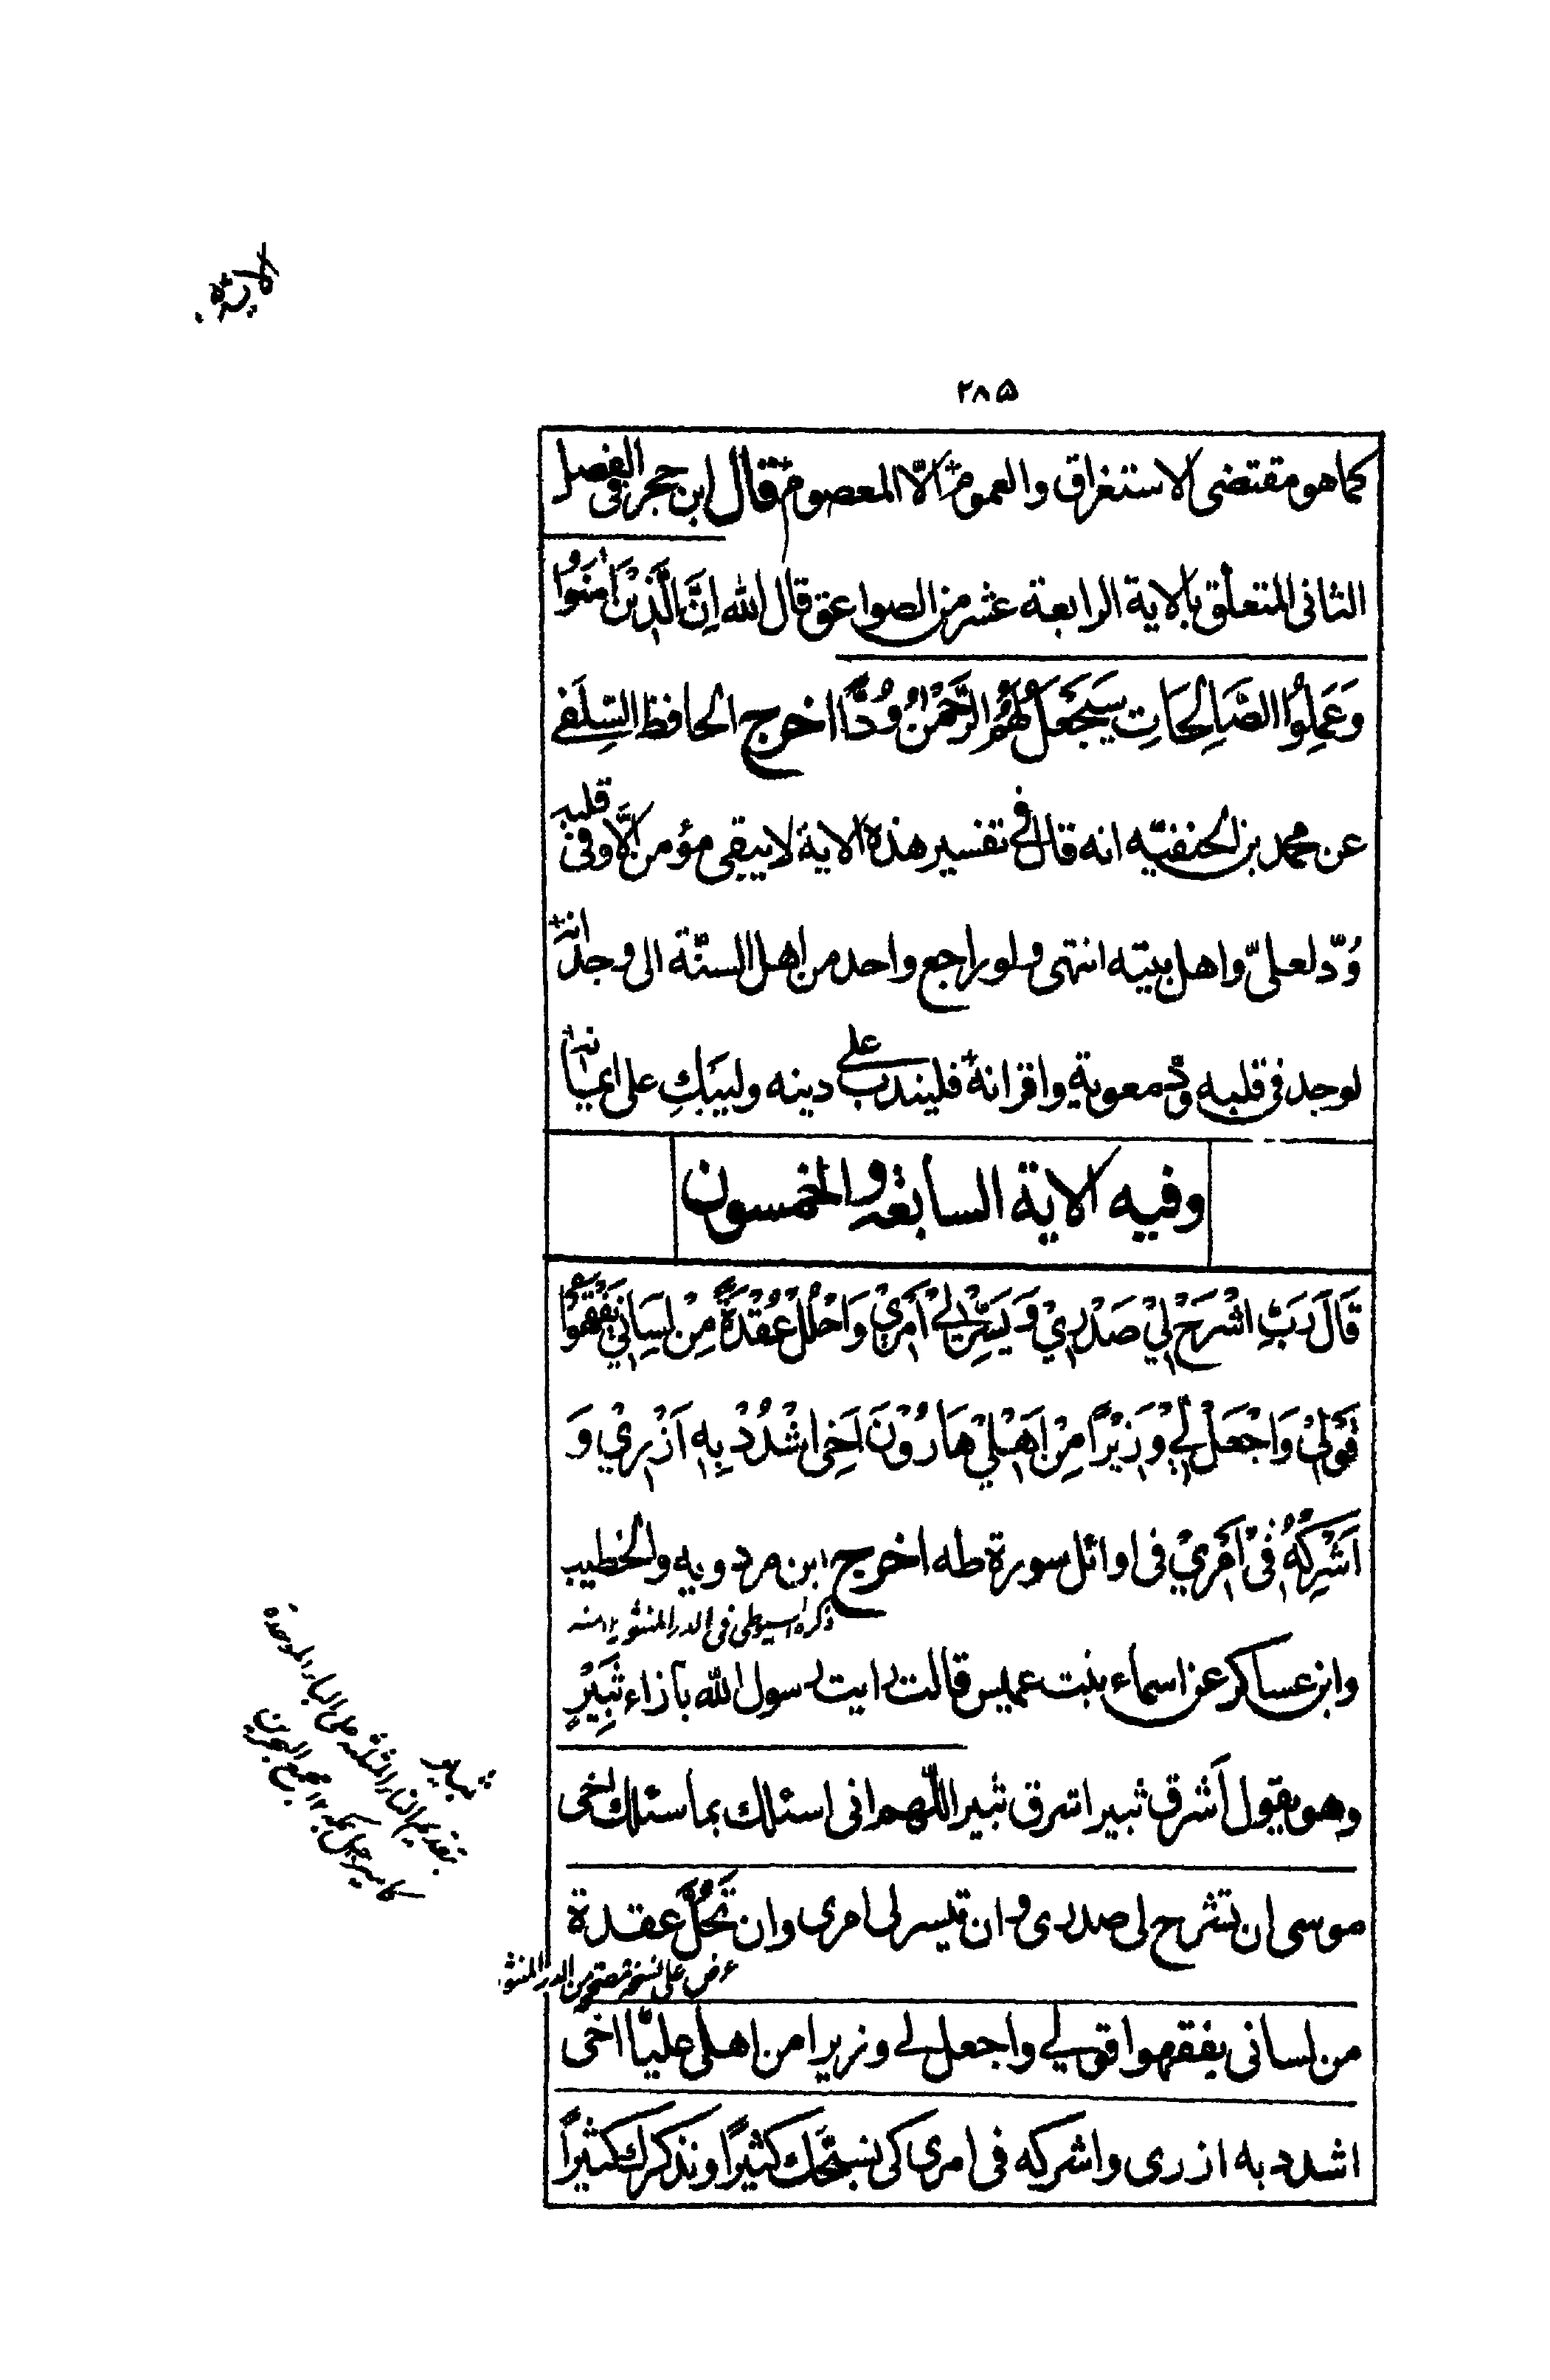 ۲۸۵
كما هو مقتضى الاستغراق والعموم الّا المعصوم قال ابن حجر في الفصل
الثاني المتعلّق بالاية الرابعة عشر من الصواعق قال الله اِنَّ الَّذِيْنَ اٰمَنُوْا
وَعَمِلُوا الصَّالِحَاتِ سَيَجْعَلُ لَهُمُ الرَّحْمٰنُ وُدًّا اخرج الحافظ السِّلَفي
عن محمد بن الحنفيّه انه قال في تفسير هذه الاية لا يبقى مؤمن الّا وفي قلبه
وُدّ لعليّ واهل بيته انتهى ولو راجع واحد من اهل السنّة الى وجدانه
لوجد في قلبه وُدّ معوية واقرانه فليندب على دينه وليبكِ على ايمانه
وفيه الاية السابعة والخمسون
قَالَ رَبِّ اشْرَحْ لِيْ صَدْرِيْ وَيَسِّرْ لِيْ اَمْرِيْ وَاحْلُلْ عُقْدَةً مِنْ لِسَانِيْ يَفْقَهُوْا
قَوْلِيْ وَاجْعَلْ لِيْ وَزِيْرًا مِنْ اَهْلِيْ هَارُوْنَ اَخِي اشْدُدْ بِهِ اَزْرِيْ وَ
اَشْرِكْهُ فِيْ اَمْرِيْ في اوائل سورة طه اخرج ابن مردويه والخطيب
ذكره السيوطي في الدر المنثور ۱۲ منه
وابن عساكر عن اسماء بنت عميس قالت رايت رسول الله بازاء ثَبِيْرٍ
وهو يقول اَشرق ثبير اشرق ثبير اللّهم اني اسئلك بما سئلك اخي
موسى ان تشرح لي صدري و ان تيسر لي امري وان تَحُلَّ عقدة
عرض على نسخة مصححة من الدر المنثور
من لساني يفقهوا قولي واجعل لي وزيرا من اهلي عليّا اخي
اشدد به ازري واشركه في امري كي نسبّحك كثيرًا ونذكرك كثيرًا
ثبير
بتقديم الثاء المثلثة على الباء الموحدة
كامير جبل بمكة ۱۲ مجمع البحرين